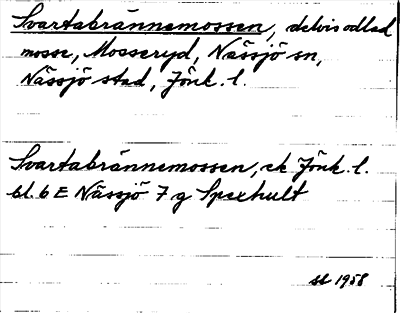 Svartabrännemossen, delvis odlad
mosse, Mosseryd, Nässjö sn,
Nässjö stad, Jönk. l.
Svartabrännemossen, ek Jönk. l.
bl. 6 E Nässjö 7 g Spexhult
sl 1958